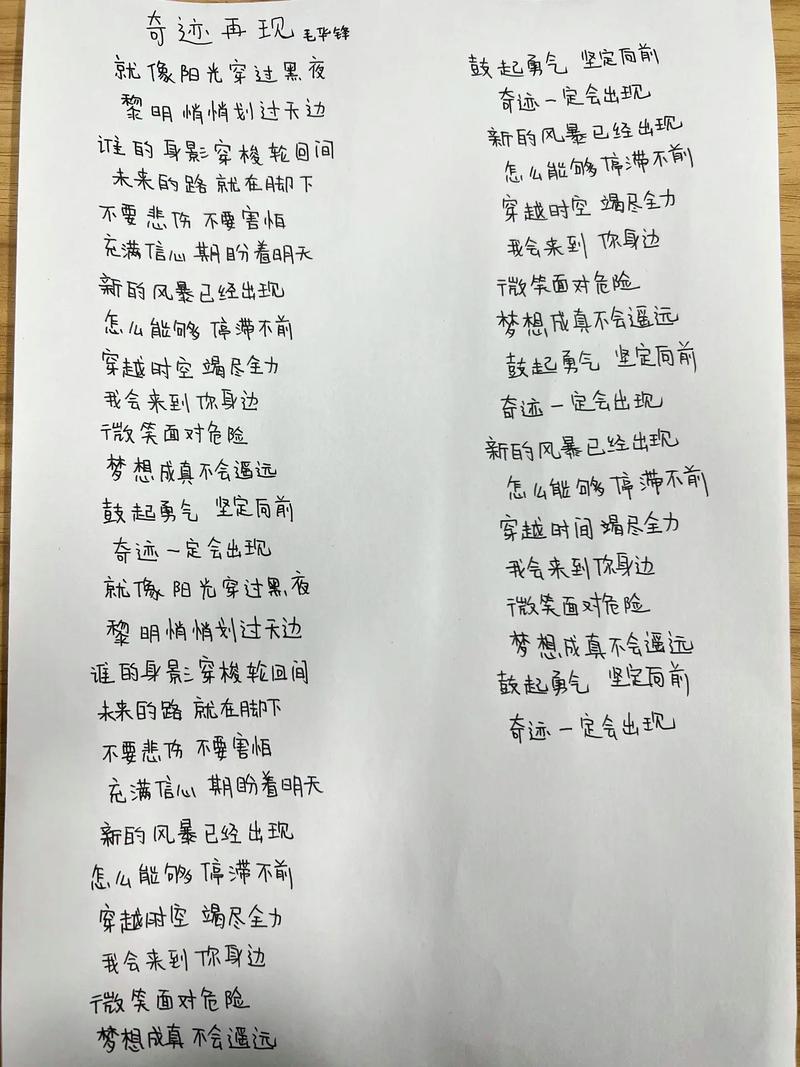 奇迹再现 毛华锋
就像阳光穿过黑夜
黎明悄悄划过天边
谁的身影穿梭轮回间
未来的路 就在脚下
不要悲伤 不要害怕
充满信心 期盼着明天
新的风暴已经出现
怎么能够 停滞不前
穿越时空 竭尽全力
我会来到你身边
微笑面对危险
梦想成真不会遥远
鼓起勇气 坚定向前
奇迹一定会出现
就像阳光穿过黑夜
黎明悄悄划过天边
谁的身影穿梭轮回间
未来的路 就在脚下
不要悲伤 不要害怕
充满信心 期盼着明天
新的风暴已经出现
怎么能够 停滞不前
穿越时空 竭尽全力
我会来到 你身边
微笑面对危险
梦想成真 不会遥远
鼓起勇气 坚定向前
奇迹一定会出现
新的风暴已经出现
怎么能够 停滞不前
穿越时空 竭尽全力
我会来到 你身边
微笑面对危险
梦想成真不会遥远
鼓起勇气 坚定向前
奇迹一定会出现
新的风暴已经出现
怎么能够 停滞不前
穿越时间 竭尽全力
我会来到你身边
微笑面对危险
梦想成真不会遥远
鼓起勇气 坚定向前
奇迹一定会出现